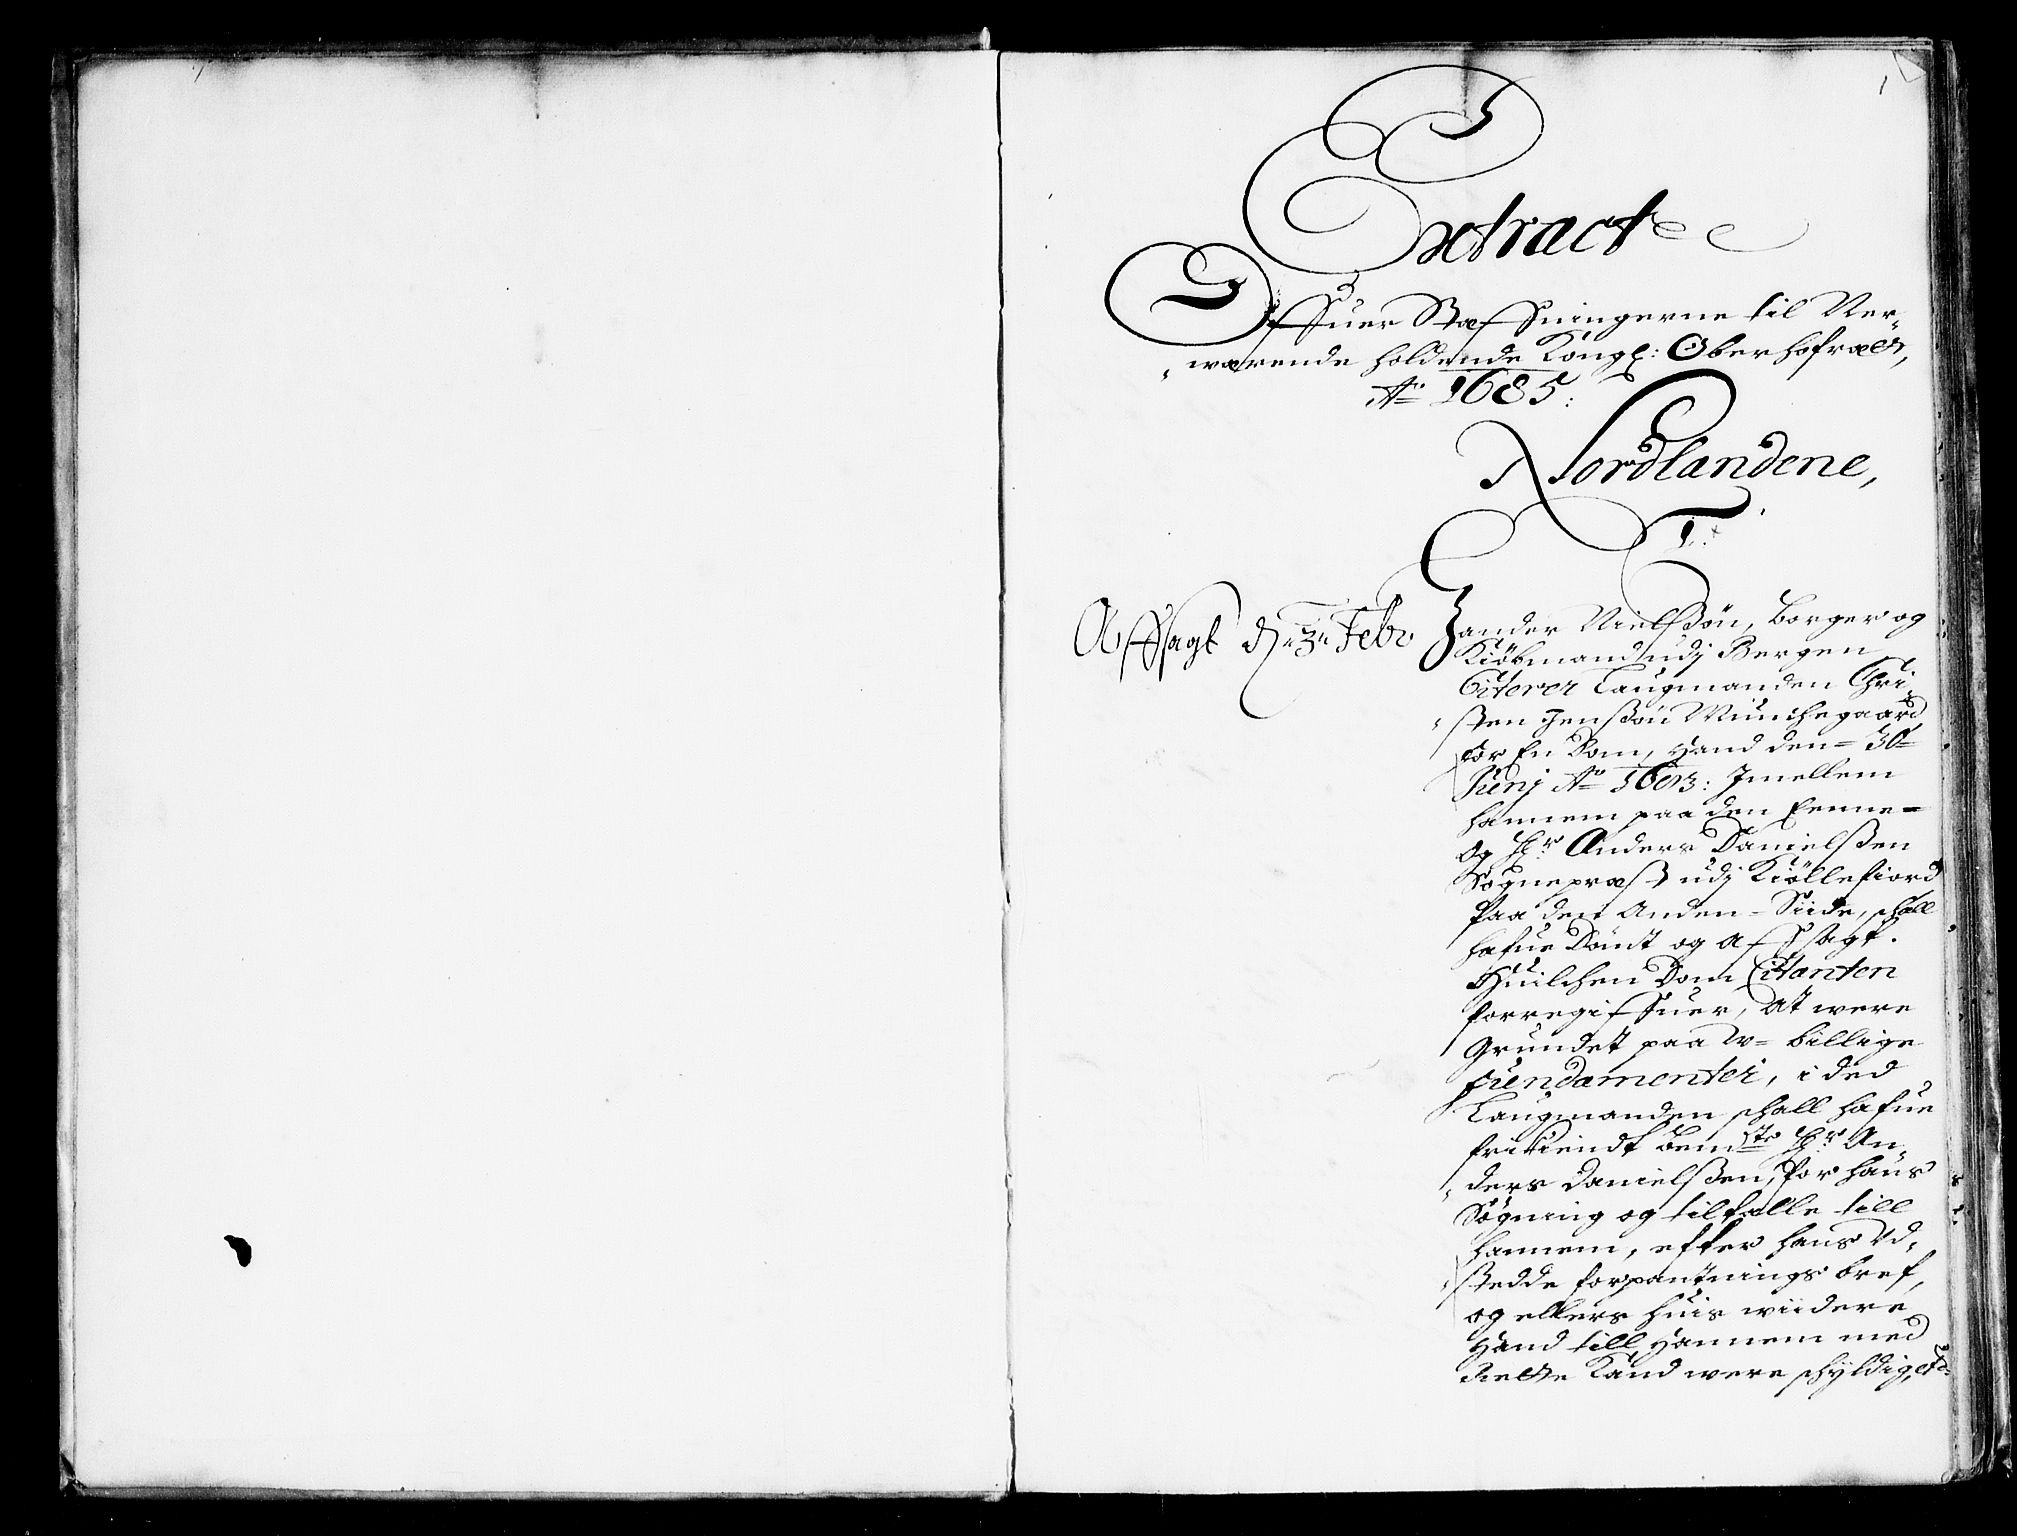 1
Extract
Offuer Steffningerne til Ner-
warende holdende Kongl: Oberhofræt,
Ao 1685:
Nordlandene,
1:
Affsagt d. 3 Febr
Zander Nielssøn, Borger og
Kiøbmand udj Bergen
Citerer Laugmanden Chri-
sten Jenssøn Munchegaard
for En Dom, Hand den 30
Junj Ao 1683: Jmellem
hannem paa den Eenne
Og Hr Anders Danielssen
Sognepræst udj Kiøllefiord
Paa den Anden Siide, schall
hafue Dømt og affsagt.
Huilchen Dom Citanten
forregiffuer, At were
Grundet paa w-billige
fundamenter, i ded
Laugmanden schall hafue
frikiendt bemte Hr An-
ders Danielssen, for hans
Søgning og tiltalle till
hannem, efter hans Ud-
stedde forpantnings bref,
og ellers huis wiidere
Hand till Hannem med
Rette Kand were schyldig,